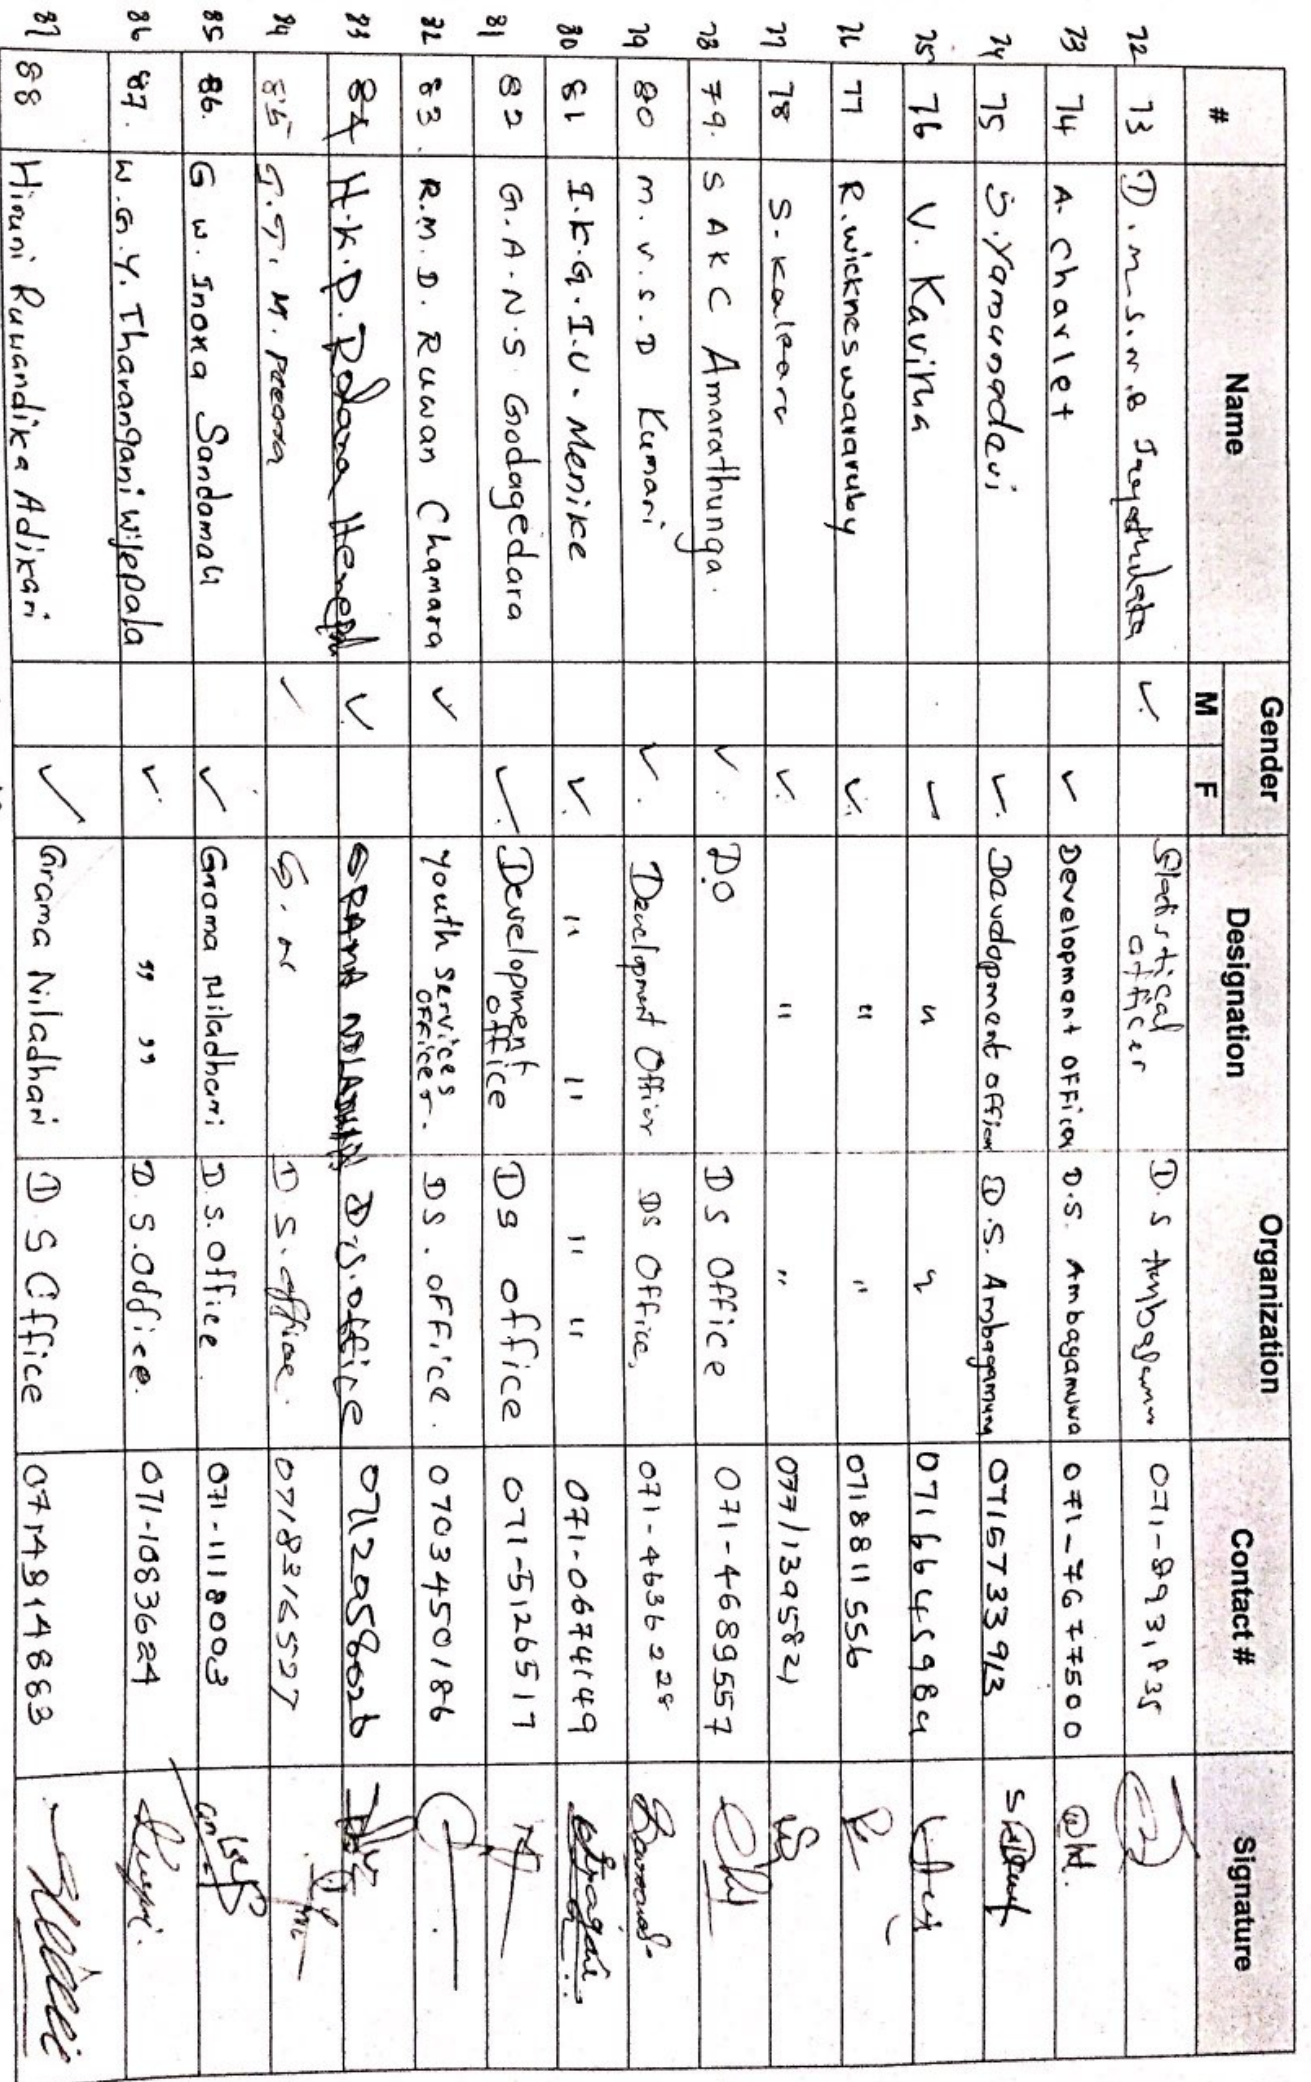 # Name Gender Designation Organization Contact # Signature
M F
72 73 D.M.S.N.B ✓ Statistical officer D.S
73 74 A. Charlet ✓ Development officer D.S. Ambagamuwa 071-7677500
74 75 S. Yamunadevi ✓ Davdopment officer D.S. Ambagamuwa 0715733913
75 76 V. Kavitha ✓ " " 0716645984
76 77 R. wickneswararuby ✓ " " 0718811556
77 78 ✓ " " 077/1395821
78 79. S A K C Amarathunga. ✓ D.O DS Office 071-4689557
79 80 M.V.S.D Kumari ✓ Development Officer DS Office, 071-4636228
80 81 I.K.G.I.U. Menike ✓ " " " " 071-0674149
81 82 G.A.N.S. Godagedara ✓ Development office DS office 071-5126517
82 83. R.M.D. Ruwan Chamara ✓ youth services officer. DS. office. 0703450186
83 84 H.K.P. ✓ GRAMA NILADHARI D.S. office 0712058026
84 85 ✓ G.N D S. office. 0718316527
85 86. G W. Inoka Sandamali ✓ Grama Niladhari D.S. office. 071-1118003
86 87. W.G.Y. Tharangani wijepala ✓ " " D.S. office. 071-1083624
87 88 Hiruni Ruwandika Adikari ✓ Grama Niladhari D.S Office 0714914883